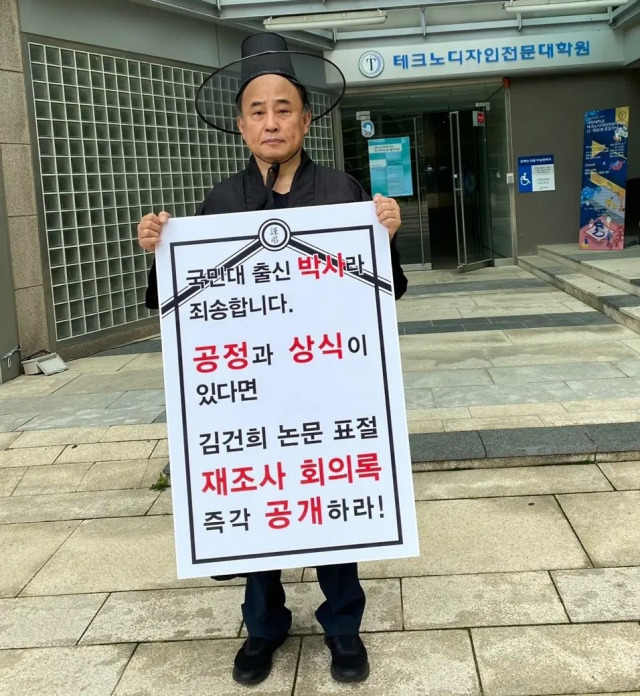 T 테크노디자인전문대학원
謹弔
국민대 출신 박사라
죄송합니다.
공정과 상식이
있다면
김건희 논문 표절
재조사 회의록
즉각 공개하라!